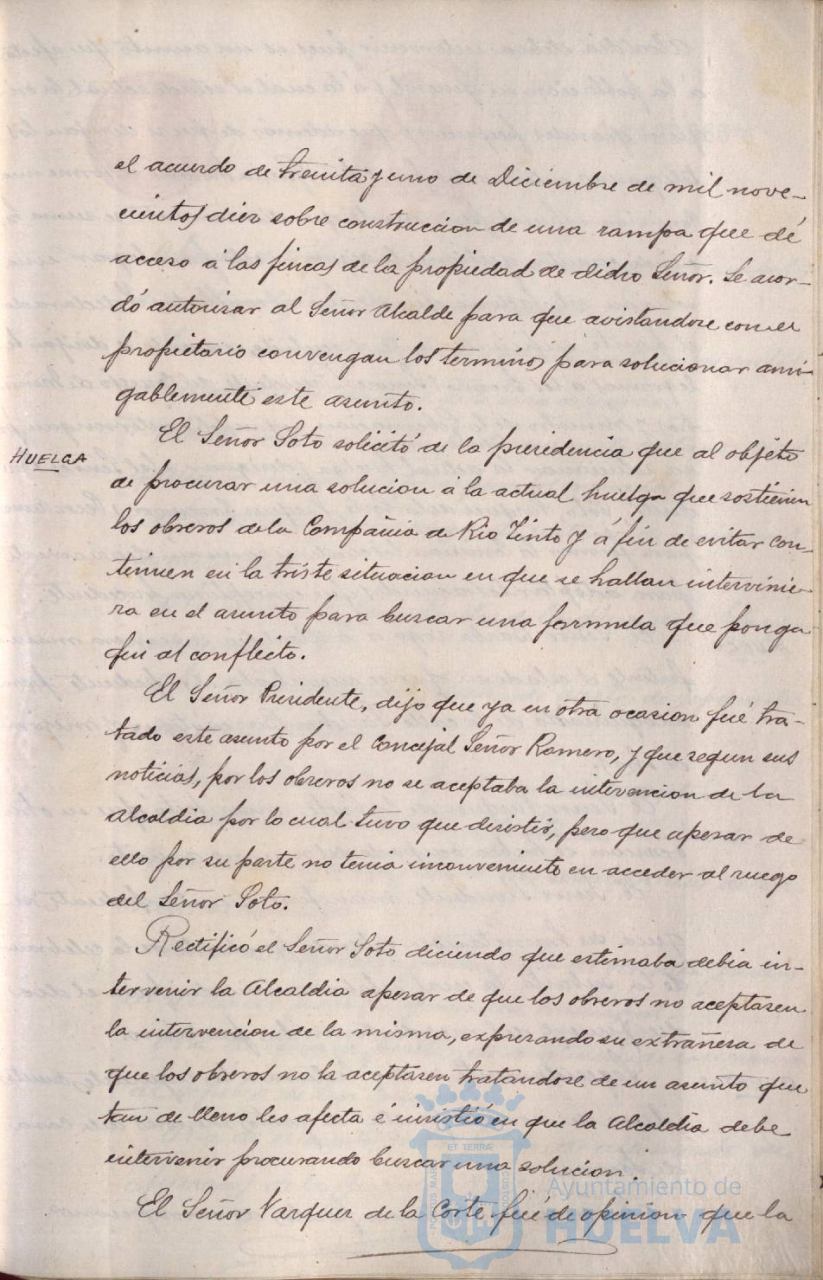 el acuerdo de treinta y uno de Diciembre de mil nove-
cientos diez sobre construccion de una rampa que dé
acceso á las fincas de la propiedad de dicho Señor. Se acor-
dó autorizar al Señor Alcalde para que avistandose con el
propietario convengan los terminos para solucionar ami-
gablemente este asunto.
HUELGA
El Señor Soto solicitó de la presidencia que al objeto
de procurar una solucion á la actual huelga que sostienen
los obreros de la Compañia de Rio Tinto y á fin de evitar con-
tinuen en la triste situacion en que se hallan intervinie-
ra en el asunto para buscar una formula que ponga
fin al conflicto.
El Señor Presidente, dijo que ya en otra ocasion fué tra-
tado este asunto por el Concejal Señor Romero, y que segun sus
noticias, por los obreros no se aceptaba la intervencion de la
Alcaldia por lo cual tuvo que desistir, pero que apesar de
ello por su parte no tenia inconveniente en acceder al ruego
del Señor Soto.
Rectificó el Señor Soto diciendo que estimaba debia in-
tervenir la Alcaldia apesar de que los obreros no aceptasen
la intervencion de la misma, expresando su extrañesa de
que los obreros no la aceptasen tratandose de un asunto que
tan de lleno les afecta é insistió en que la Alcaldia debe
intervenir procurando buscar una solucion.
El Señor Vazquez de la Corte fué de opinion que la
ET TERRA
Ayuntamiento de
HUELVA